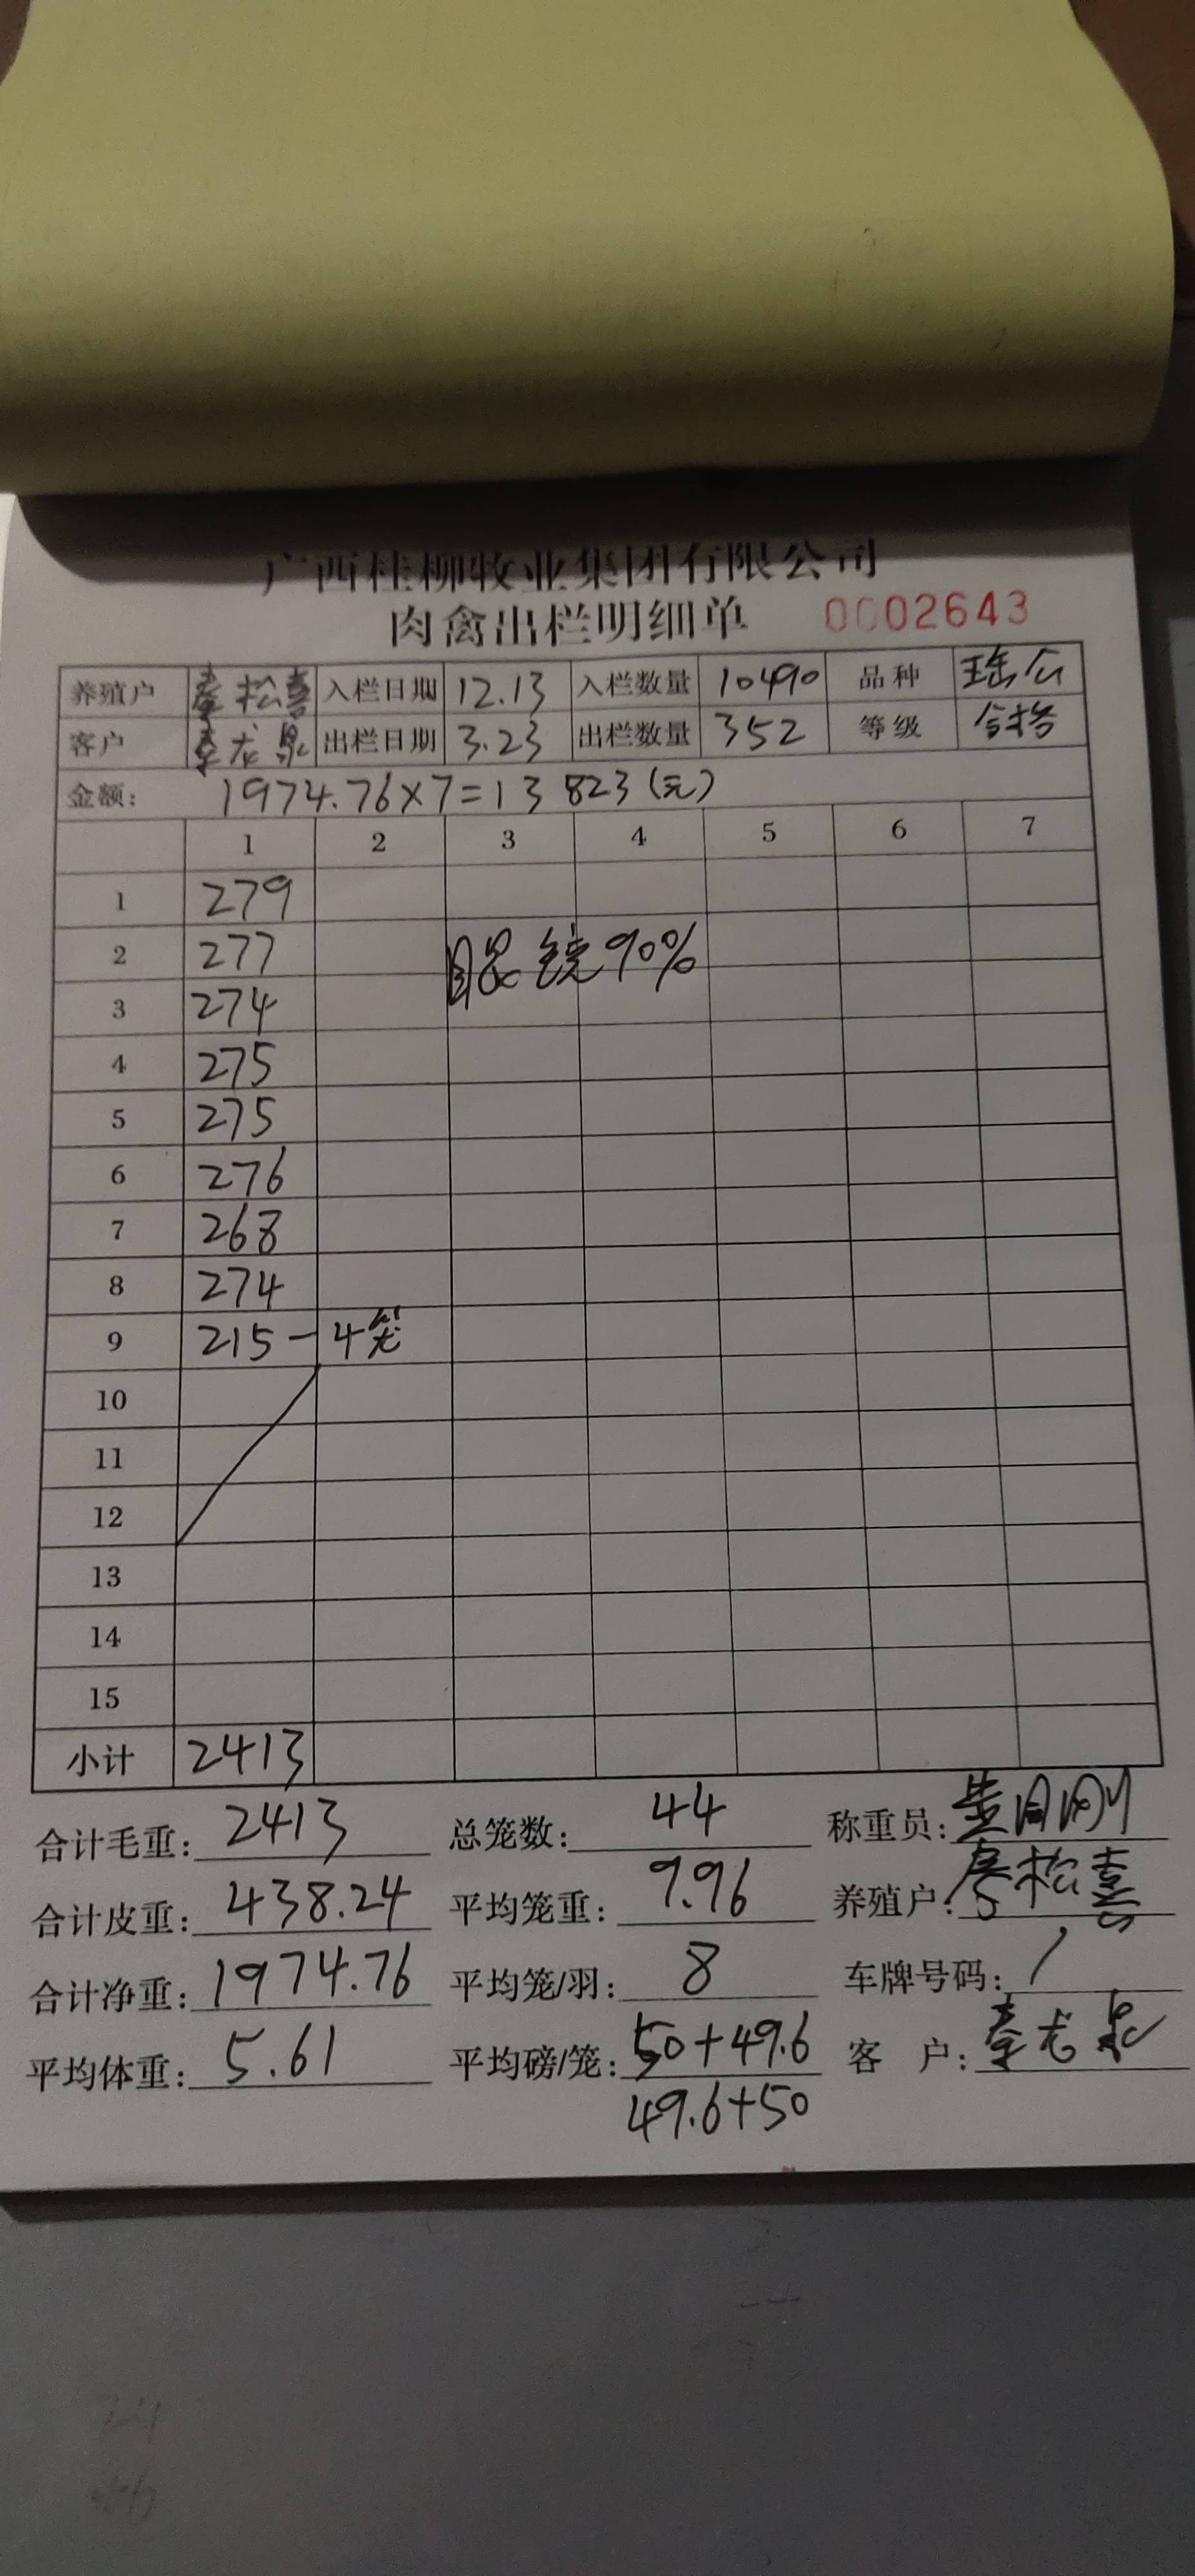 广西桂柳牧业集团有限公司
肉禽出栏明细单 0002643
养殖户 松喜 入栏日期 12.13 入栏数量 10490 品种 瑶公
客户 龙泉 出栏日期 3.23 出栏数量 352 等级 合格
金额: 1974.76×7=13823(元)
1 2 3 4 5 6 7
1 279
2 277 眼镜90%
3 274
4 275
5 275
6 276
7 268
8 274
9 215-4笼
10
11
12
13
14
15
小计 2413
合计毛重: 2413 总笼数: 44 称重员:
合计皮重: 438.24 平均笼重: 9.96 养殖户: 松喜
合计净重: 1974.76 平均笼/羽: 8 车牌号码: /
平均体重: 5.61 平均磅/笼: 50+49.6 客 户: 龙泉
49.6+50